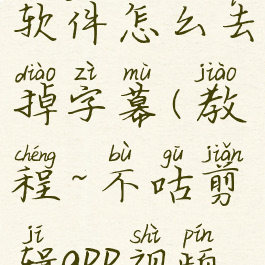 软件怎么去
diào zì mù jiào
掉字幕(教
chéng bù gū jiǎn
程~不咕剪
jí shì pín
辑app视频